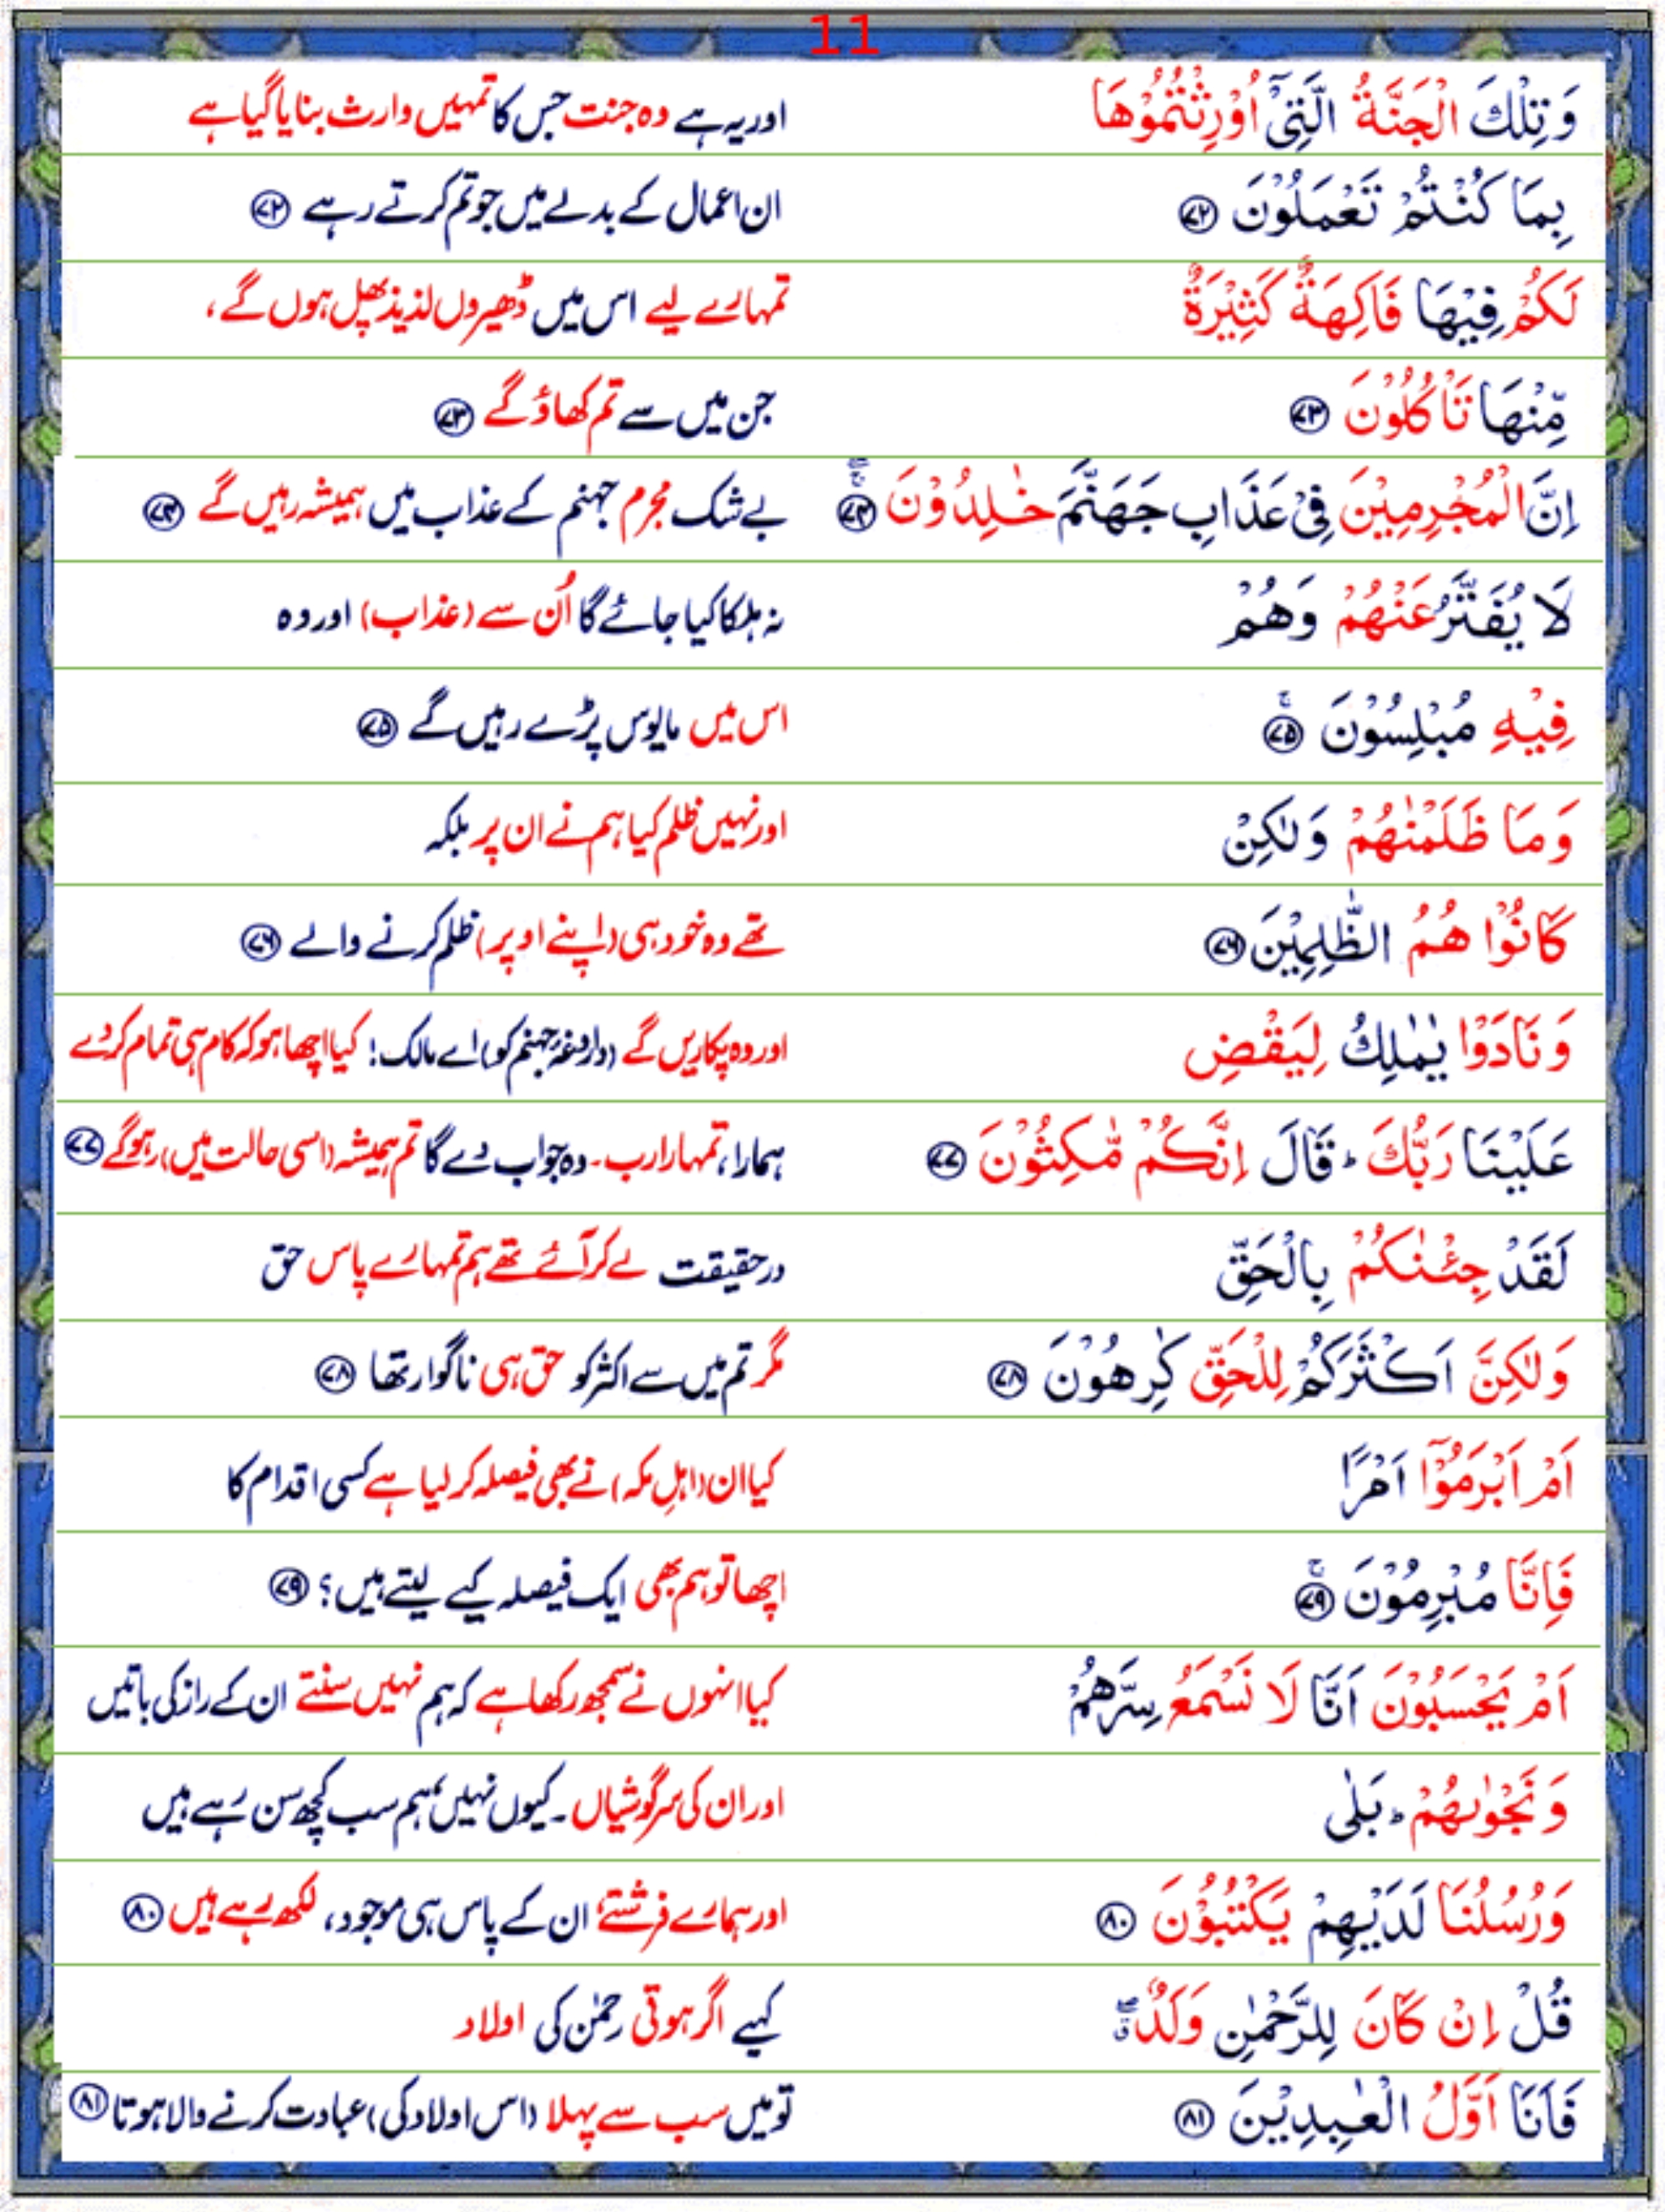 11
وَتِلْكَ الْجَنَّةُ الَّتِیْۤ اُوْرِثْتُمُوْهَا اور یہ ہے وہ جنت جس کا تمہیں وارث بنایا گیا ہے
بِمَا كُنْتُمْ تَعْمَلُوْنَ ﴿۷۲﴾ ان اعمال کے بدلے میں جو تم کرتے رہے ﴿۷۲﴾
لَكُمْ فِیْهَا فَاكِهَةٌ كَثِیْرَةٌ تمہارے لیے اس میں ڈھیروں لذیذ پھل ہوں گے،
مِّنْهَا تَاْكُلُوْنَ ﴿۷۳﴾ جن میں سے تم کھاؤ گے ﴿۷۳﴾
اِنَّ الْمُجْرِمِیْنَ فِیْ عَذَابِ جَهَنَّمَ خٰلِدُوْنَ ﴿۷۴﴾ۚ بے شک مجرم جہنم کے عذاب میں ہمیشہ رہیں گے ﴿۷۴﴾
لَا یُفَتَّرُ عَنْهُمْ وَهُمْ نہ ہلکا کیا جائے گا اُن سے (عذاب) اور وہ
فِیْهِ مُبْلِسُوْنَ ﴿۷۵﴾ۚ اس میں مایوس پڑے رہیں گے ﴿۷۵﴾
وَمَا ظَلَمْنٰهُمْ وَلٰكِنْ اور نہیں ظلم کیا ہم نے ان پر بلکہ
كَانُوْا هُمُ الظّٰلِمِیْنَ ﴿۷۶﴾ تھے وہ خود ہی (اپنے اوپر) ظلم کرنے والے ﴿۷۶﴾
وَنَادَوْا یٰمٰلِكُ لِیَقْضِ اور وہ پکاریں گے (داروغۂ جہنم کو) اے مالک! کیا اچھا ہو کہ کام ہی تمام کر دے
عَلَیْنَا رَبُّكَ ؕ قَالَ اِنَّكُمْ مّٰكِثُوْنَ ﴿۷۷﴾ ہمارا، تمہارا رب۔ وہ جواب دے گا تم ہمیشہ (اسی حالت میں) رہو گے ﴿۷۷﴾
لَقَدْ جِئْنٰكُمْ بِالْحَقِّ درحقیقت لے کر آئے تھے ہم تمہارے پاس حق
وَلٰكِنَّ اَكْثَرَكُمْ لِلْحَقِّ كٰرِهُوْنَ ﴿۷۸﴾ مگر تم میں سے اکثر کو حق ہی ناگوار تھا ﴿۷۸﴾
اَمْ اَبْرَمُوْۤا اَمْرًا کیا ان (اہلِ مکہ) نے بھی فیصلہ کر لیا ہے کسی اقدام کا
فَاِنَّا مُبْرِمُوْنَ ﴿۷۹﴾ۚ اچھا تو ہم بھی ایک فیصلہ کیے لیتے ہیں؟ ﴿۷۹﴾
اَمْ یَحْسَبُوْنَ اَنَّا لَا نَسْمَعُ سِرَّهُمْ کیا انہوں نے سمجھ رکھا ہے کہ ہم نہیں سنتے ان کے راز کی باتیں
وَنَجْوٰىهُمْ ؕ بَلٰی اور ان کی سرگوشیاں۔ کیوں نہیں، ہم سب کچھ سن رہے ہیں
وَرُسُلُنَا لَدَیْهِمْ یَكْتُبُوْنَ ﴿۸۰﴾ اور ہمارے فرشتے ان کے پاس ہی موجود، لکھ رہے ہیں ﴿۸۰﴾
قُلْ اِنْ كَانَ لِلرَّحْمٰنِ وَلَدٌ ۖۗ کہیے اگر ہوتی رحمٰن کی اولاد
فَاَنَا اَوَّلُ الْعٰبِدِیْنَ ﴿۸۱﴾ تو میں سب سے پہلا (اس اولاد کی) عبادت کرنے والا ہوتا ﴿۸۱﴾